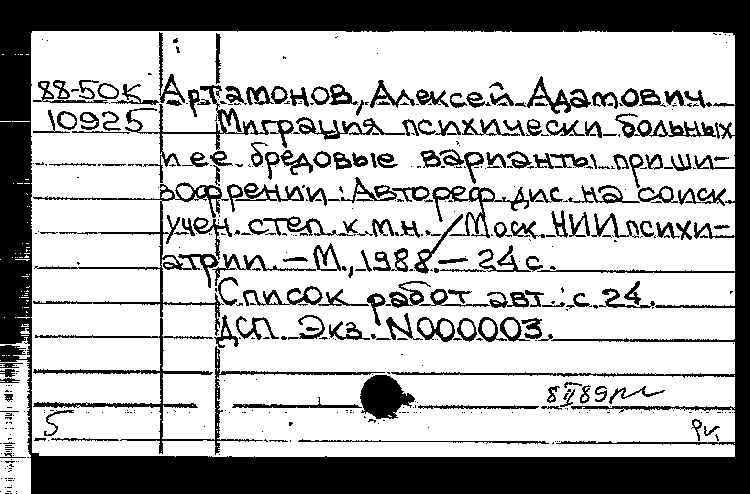 88-50К Артамонов, Алексей Адамович.
10925 Миграция психически больных
и ее бредовые варианты при ши-
зофрении : Автореф. дис. на соиск.
учен. степ. к.м.н. / Моск. НИИ психи-
атрии. — М., 1988. — 24 с.
Список работ авт.: с. 24.
ДСП. Экз. N000003.
5